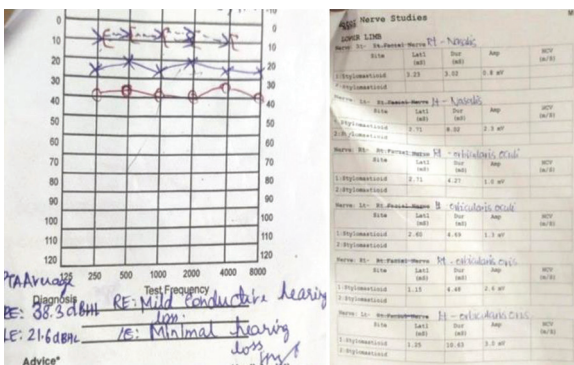 0
10
20
30
40
50
60
70
80
90
100
110
120
0
10
20
30
40
50
60
70
80
90
100
110
120
125 250 500 1000 2000 4000 8000
Test Frequency
PTA Average
Diagnosis
RE: 38.3 dBHL
RE: Mild Conductive hearing loss.
LE: 21.6 dBHL
LE: Minimal hearing loss
Advice*
Nerve Studies
LOWER LIMB
Rt - Nasalis
Site Lat1 (mS) Dur (mS) Amp NCV (m/S)
1:Stylomastoid 3.23 3.02 0.8 mV
2:Stylomastoid
Lt - Nasalis
Site Lat1 (mS) Dur (mS) Amp NCV (m/S)
1:Stylomastoid 2.71 8.02 2.5 mV
2:Stylomastoid
Rt - orbicularis oculi
Site Lat1 (mS) Dur (mS) Amp NCV (m/S)
1:Stylomastoid 2.71 4.27
2:Stylomastoid
Lt - orbicularis oculi
Site Lat1 (mS) Dur (mS) Amp NCV (m/S)
1:Stylomastoid 2.60 4.69 1.3 mV
2:Stylomastoid
Rt - orbicularis oris
Site Lat1 (mS) Dur (mS) Amp NCV (m/S)
1:Stylomastoid 1.15 6.46
2:Stylomastoid
Lt - orbicularis oris
Site Lat1 (mS) Dur (mS) Amp NCV (m/S)
1:Stylomastoid 1.25 10.63 3.0 mV
2:Stylomastoid